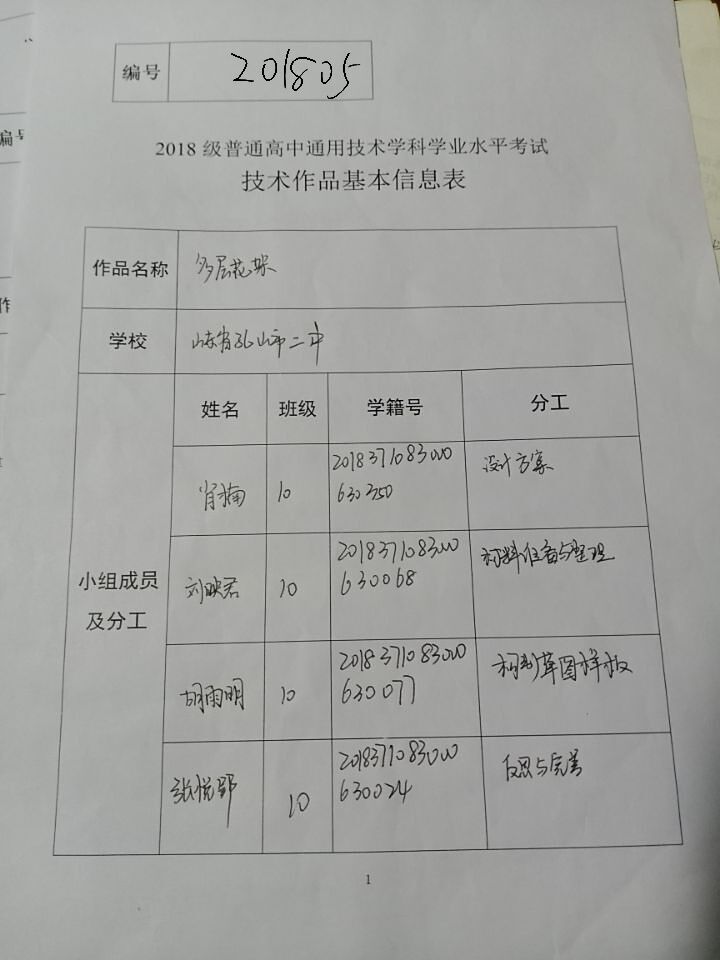 编号 201805
2018 级普通高中通用技术学科学业水平考试
技术作品基本信息表
作品名称 多层花架
学校 山东省乳山市二中
小组成员
及分工
姓名 班级 学籍号 分工
肖楠 10 2018371083000
630350
设计方案
刘映君 10 2018371083000
630068
材料准备与整理
胡雨明 10 2018371083000
630077
构制草图样板
张悦 10 2018371083000
630024
反思与完善
1